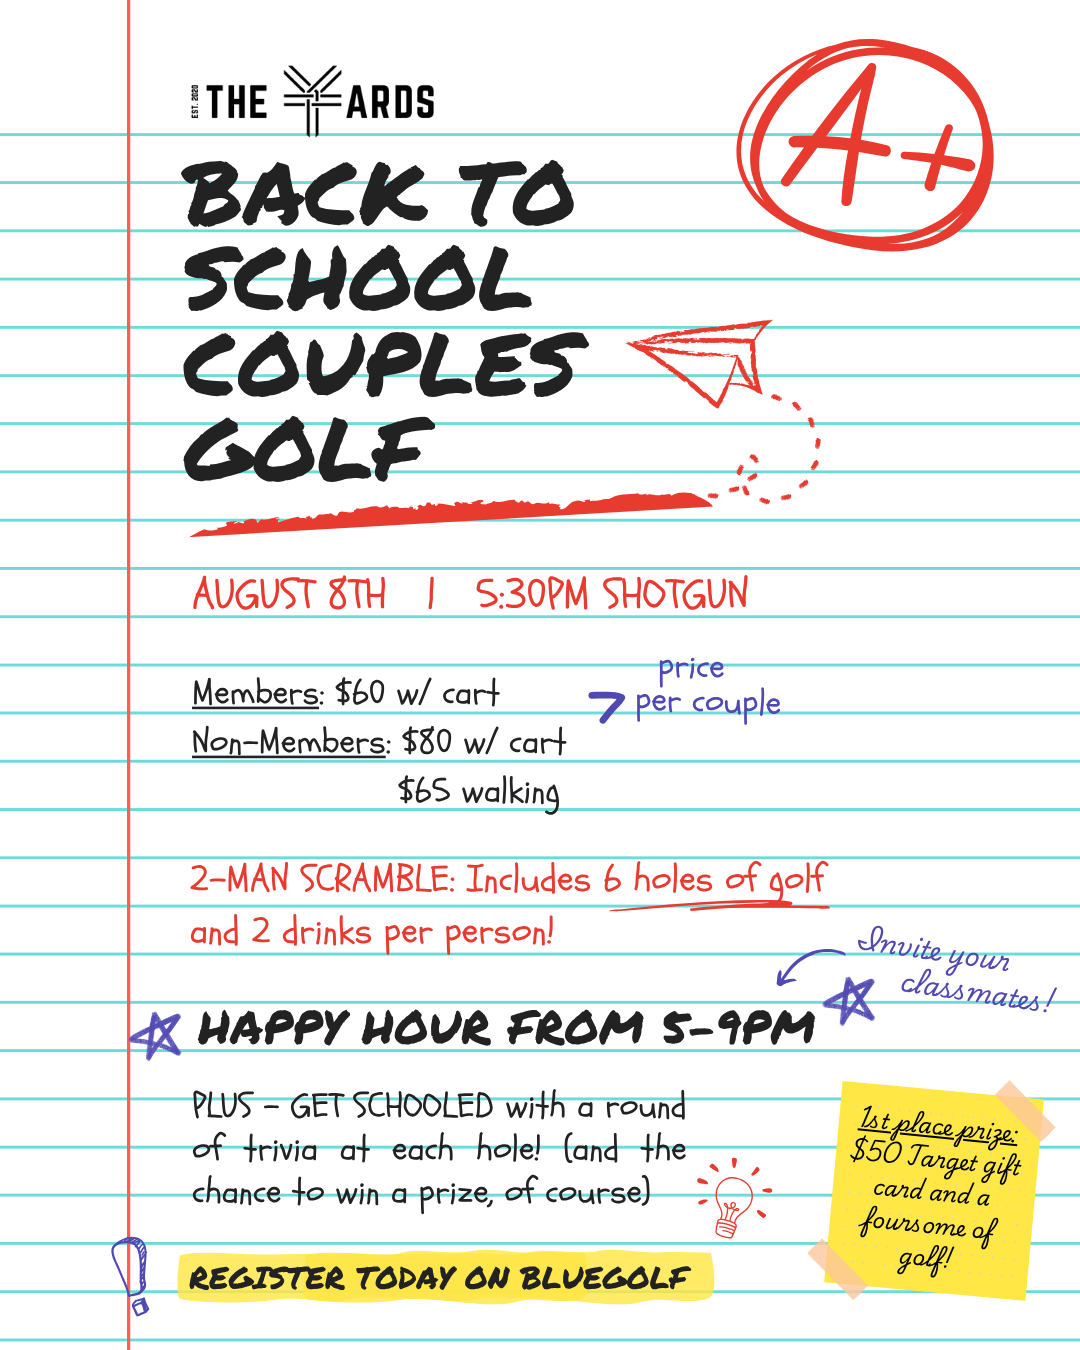 EST. 2020 THE YARDS
A+
BACK TO
SCHOOL
COUPLES
GOLF
AUGUST 8TH | 5:30PM SHOTGUN
Members: $60 w/ cart
price
per couple
Non-Members: $80 w/ cart
$65 walking
2-MAN SCRAMBLE: Includes 6 holes of golf
and 2 drinks per person!
Invite your
classmates!
HAPPY HOUR FROM 5-9PM
PLUS - GET SCHOOLED with a round
of trivia at each hole! (and the
chance to win a prize, of course)
1st place prize:
$50 Target gift
card and a
foursome of
golf!
REGISTER TODAY ON BLUEGOLF